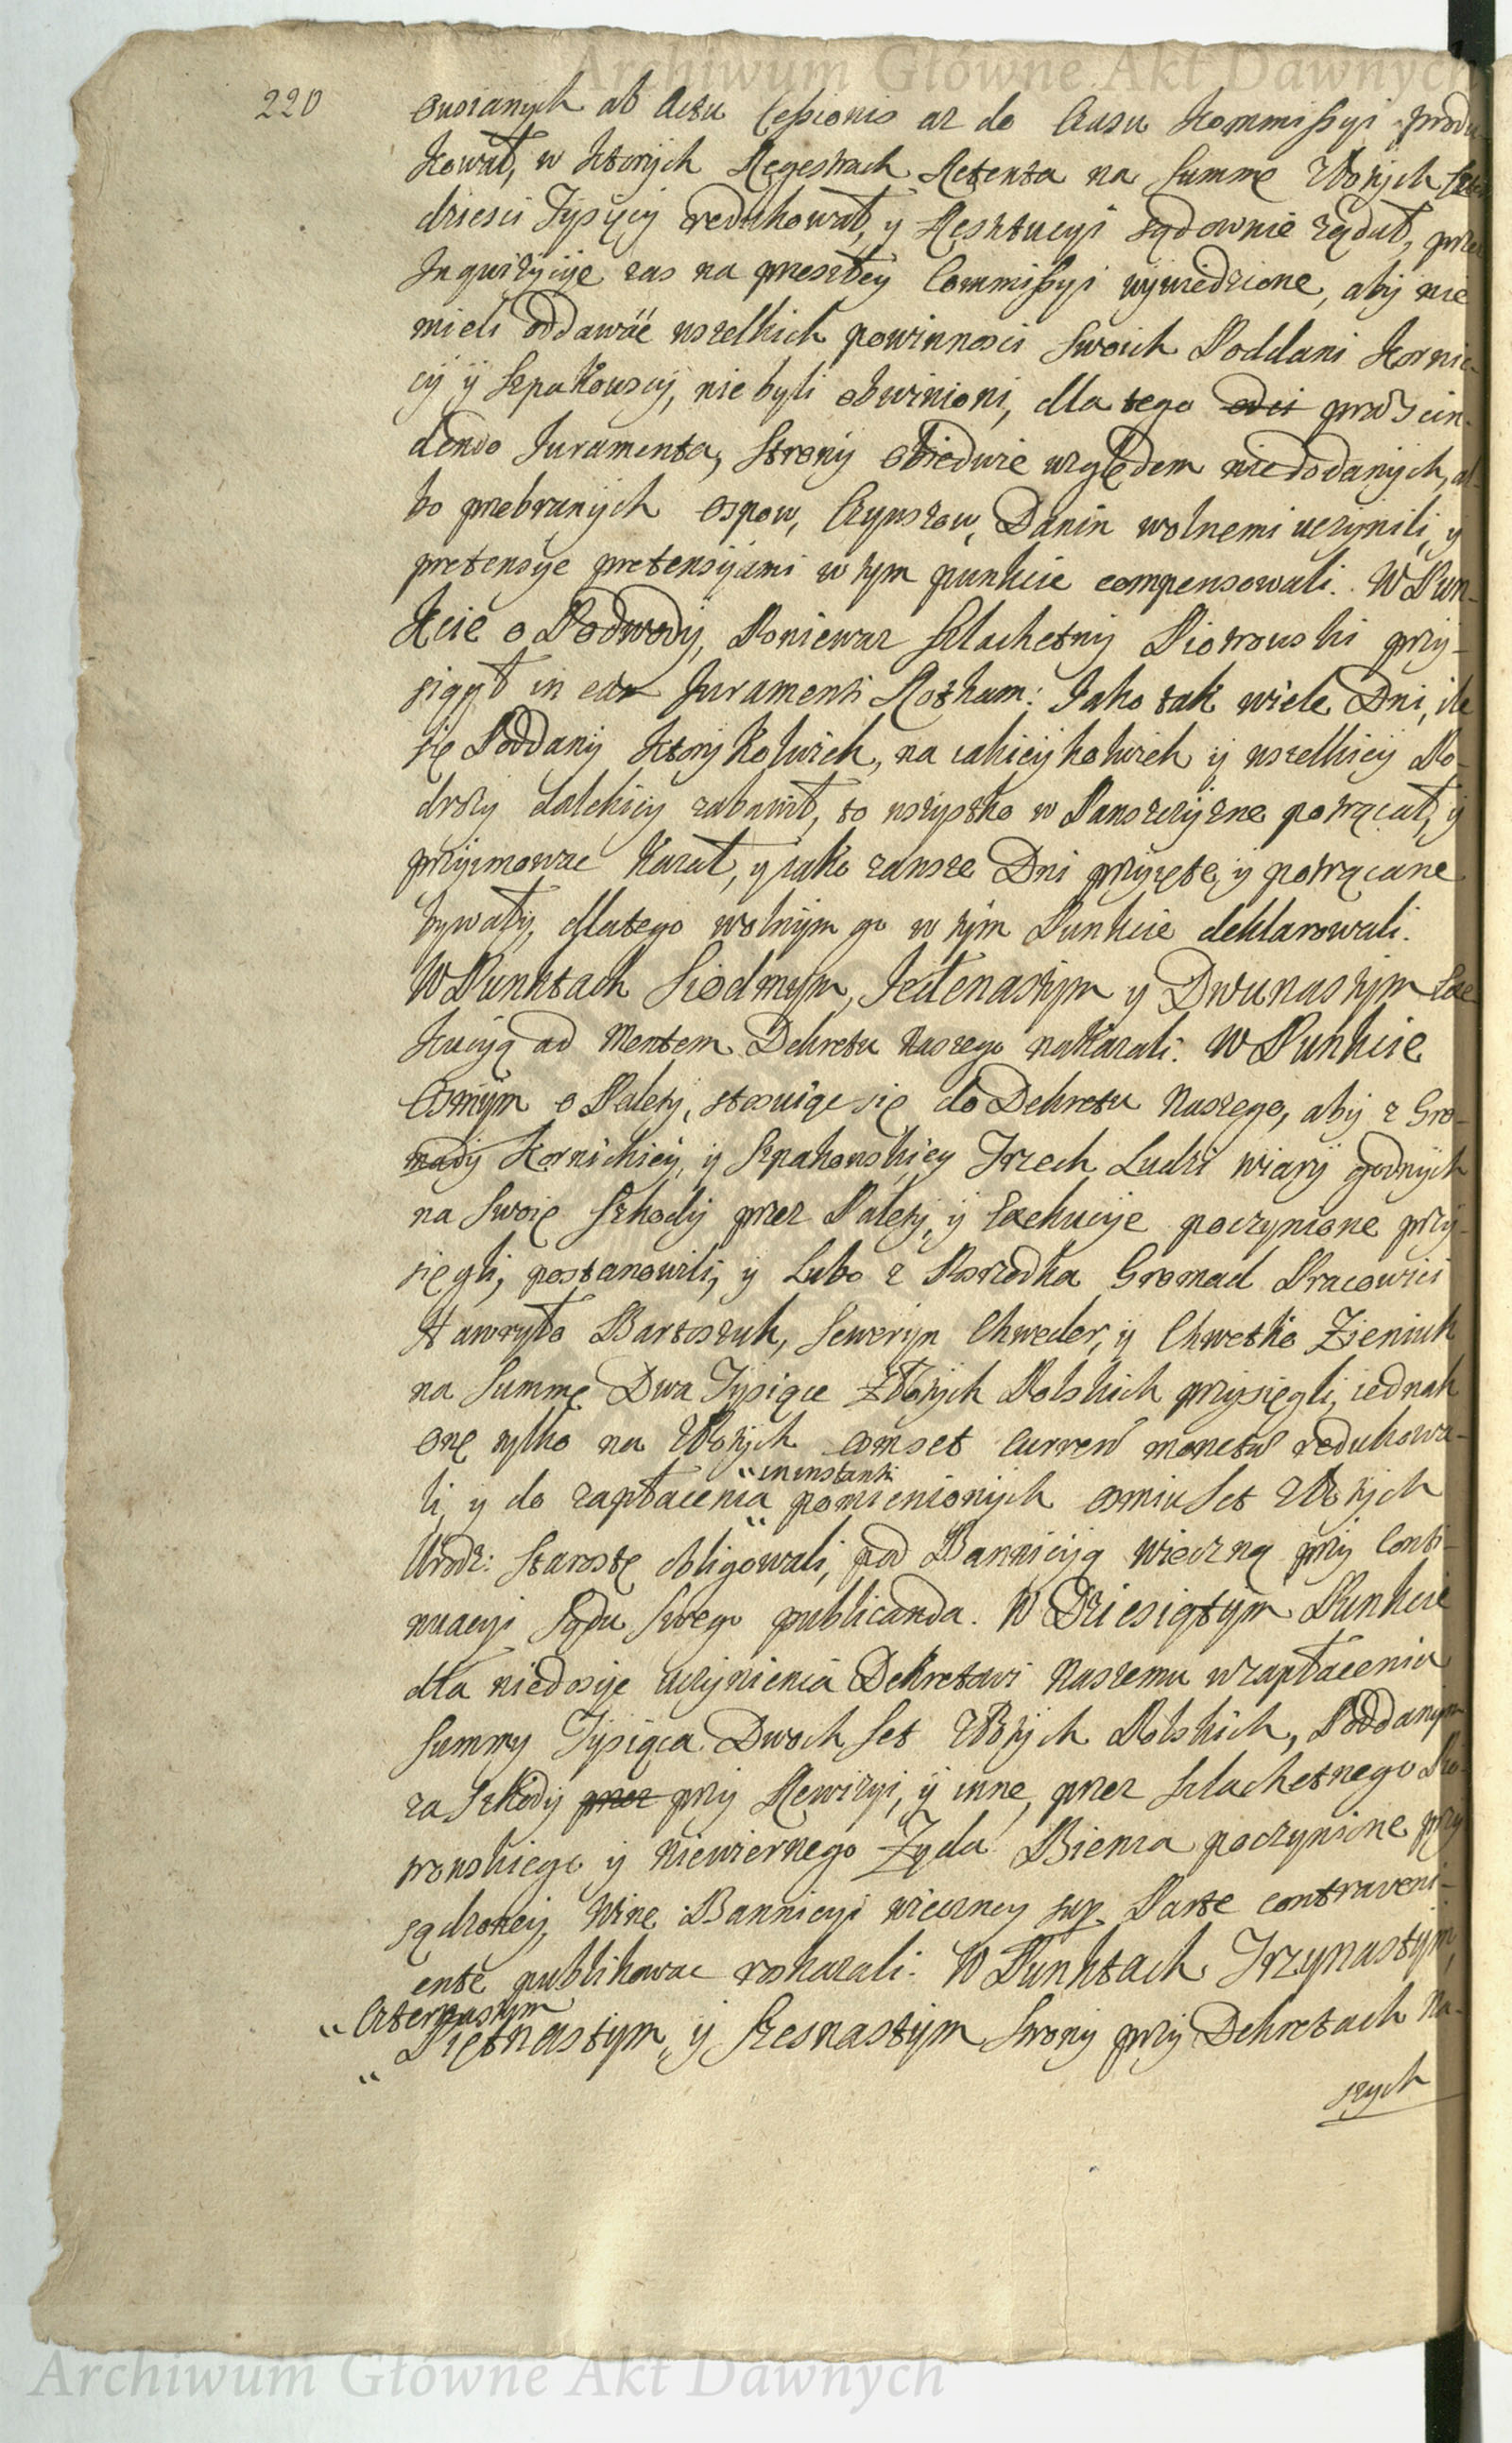 Archiwum Główne Akt Dawnych
220
ab Actu Cessionis az do Czasu Kommissyi produ-
kował, w ktorych Regestrach Retenta na Summę Złotych
dziesci Tysięcy redukował, y Restytucyi sądownie żądał, przez
Inquizycyie zas na przeszłey Commissyi wywiedzione, aby nie
mieli oddawać wszelkich powinnosci swoich Poddani Kornic-
cy y Szpakowscy, nie byli obwinioni, dla tego przescin-
dendo Juramenta, Strony obiedwie względem niedodanych, al-
bo przebranych Ospow, Czynszow, Danin wolnemi uczynili, y
pretensye pretensyiami w tym punkcie compensowali. W Pun-
kcie o Podwody, Poniewaz Szlachetny Piotrowski przy-
siągł in eam Juramenti Rotham: Jako tak wiele Dni, ile
się Poddany ktorykolwiek, na iakieykolwiek y wszelkiey Po-
drozy dalekiey zabawił, to wszystko w Panszczyznę potrącał, y
przyimowac kazał, y iako zawsze Dni przyięte, y potrącane
bywały, dlatego wolnym go w tym Punkcie deklarowali.
W Punktach Siodmym, Jedenastym y Dwunastym Exe-
kucyą ad Mentem Dekretu Naszego nakazali. W Punkcie
Osmym o Palety, stosuiąc się do Dekretu Naszego, aby z Gro-
mady Kornickiey, y Szpakowskiey Trzech Ludzi wiary godnych
na Swoie Szkody przez Palety, y Exekucyie poczynione przy-
sięgli, postanowili, y Lubo z Posrzodka Gromad Pracowici
Hawryło Bartoszuk, Seweryn Chweder, y Chwetko Zieniuk
na Summę Dwa Tysiące Złotych Polskich przysięgli, iednak
onę tylko na Złotych osmset curren monetæ redukowa-
li, y do zapłacenia " in instanti pomienionych osmiuset Złotych
Urodz: Starostę obligowali, pod Bannicyą wieczną przy Conti-
nuacyi Sądu Swego publicanda. W Dziesiątym Punkcie
dla niedosyc uczynienia Dekretowi Naszemu w zapłaceniu
Summy Tysiąca Dwoch Set Złotych Polskich, Poddanym
za Szkody przez przy Rewizyi, y inne, przez Szlachetnego Pio-
trowskiego y niewiernego Zyda Bienia poczynione przy
sądzoney, Winę Bannicyi wieczney sup Parte contraveni-
ente publikowac rozkazali. W Punktach Trzynastym,
" Czternastym
" Piętnastym, y Szesnastym Strony przy Dekretach Na-
szych
Archiwum Główne Akt Dawnych